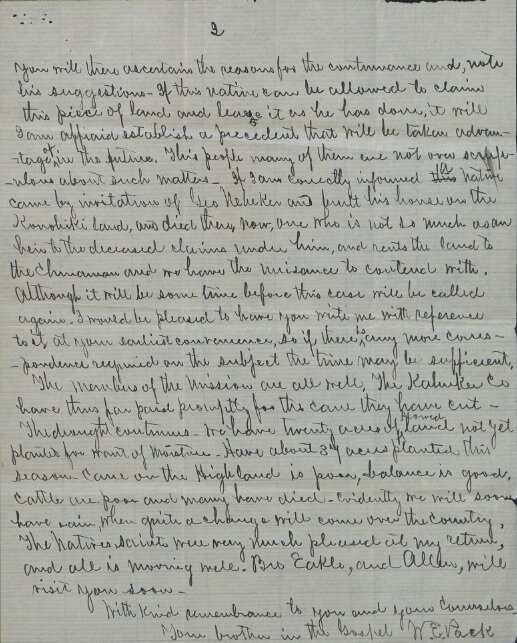 2
you will there ascertain the reasons for the continuance and, note
his suggestions - If this native can be allowed to claim
this piece of land and lease it as he has done, it will
I am affraid establish a precedent that will be taken advan-
-tage of, in the future. This people many of them are not over scrupu-
-lous about such matters - If I am correctly informed a native
came by invitation of Geo Nebeker and built his house on the
Konohiki land, and died there, now, one who is not so much as an
heir to the deceased claims under him, and rents the land to
the Chinaman and we have the nuisance to contend with.
Although it will be some time before this case will be called
again. I would be pleased to have you write me with reference
to it at your earliest convenience, so if there is any more corres-
-pondence required on the subject the time may be sufficient,
The members of the Mission are all well, The Kahuku Co
have thus far paid promptly for the cane they have cut -
The drought continues. We have twenty acres of plowed land not yet
planted for want of moisture - Have about 34 acres planted this
season - Cane on the Highland is poor, balance is good,
Cattle are poor and many have died - Evidently we will soon
have rain, when quite a change will come over the country,
The Native saints were very much pleased at my return,
and all is moving well. Bro Eakle, and Allen, will
visit you soon -
With kind remembrance to you and your Counselors -
Your brother in the Gospel W E Pack